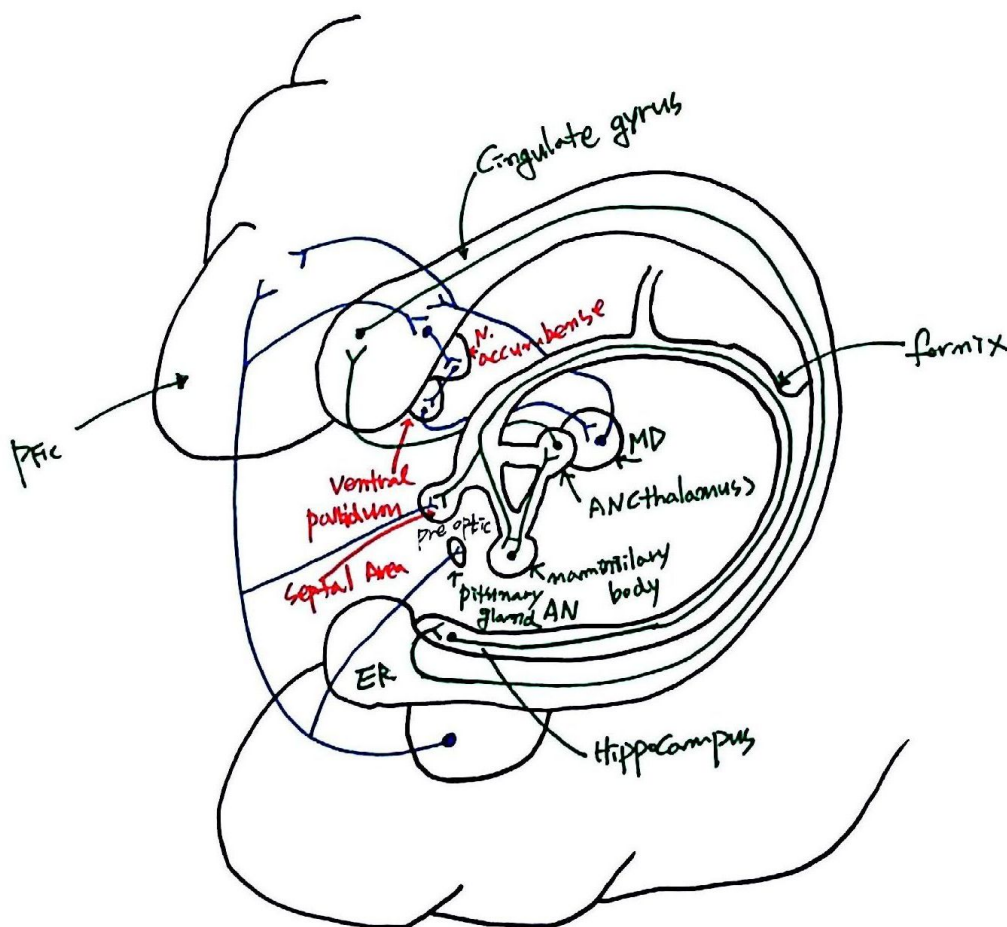 Cingulate gyrus
N.
accumbense
fornix
Pfc
MD
Ventral
pallidum
AN(thalamus)
Pre optic
Septal Area
mammillary
body
pituitary
gland AN
ER
Hippocampus